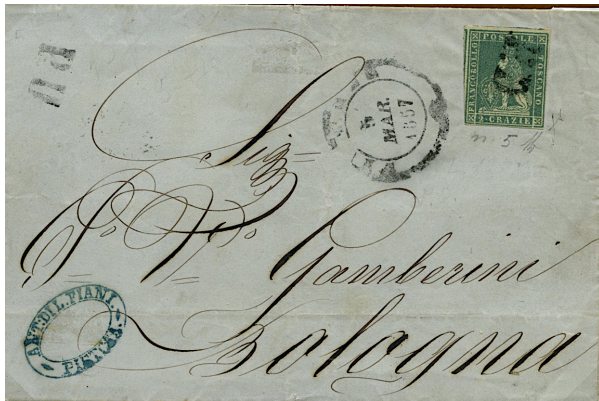 PD
FRANCOBOLLO POSTALE TOSCANO
2 CRAZIE
5
MAR.
1857
n. 5
Sig
Gamberini
Bologna
ANT. DI L. PIANI.
PISTOIA.